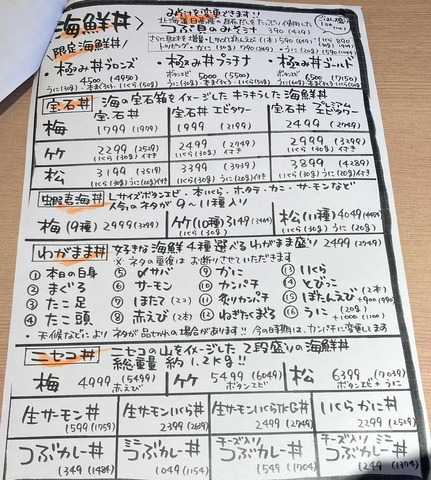 海鮮丼
つぶ貝のみそ汁 390 (429)
〈限定海鮮丼〉
・極み丼ブロンズ ・極み丼プラチナ ・極み丼ゴールド
4500 (4950) 5000 (5500) 6500 (7150)
宝石丼 海の宝石箱をイメージした キラキラした 海鮮丼
宝石丼 宝石丼 エビタワー 宝石丼 プレミアムエビタワー
梅 1799 (1979) 1999 (2199) 2499 (2749)
竹 2299 (2529) 2499 (2749) 2999 (3299)
いくら(30g) イナキ いくら(30g) いくら(30g)
松 3199 (3519) 3399 (3739) 3899 (4289)
いくら(30g) うに(20g) いくら(30g) うに(20g) いくら(30g) うに(20g)
蝦壱海丼 Lサイズボタンエビ・本いくら・ホタテ・カニ・サーモンなど
人気のネタが 9〜11種入り
梅 (9種) 2999 (3299) 竹 (10種) 3149 (3464) 松 (11種) 4049 (4454)
いくら(30g) いくら(30g) うに(20g)
わがまま丼 好きな海鮮4種選べるわがまま盛り 2499 (2749)
※ ネタの重複はお断りさせていただきます
① 本日の白身 ⑤ 〆サバ ⑨ かに ⑬ いくら
② まぐろ ⑥ サーモン ⑩ カンパチ ⑭ とびっこ
③ たこ足 ⑦ ほたて (2コ) ⑪ 炙りカンパチ ⑮ ぼたんえび (2本) +900 (990)
④ たこ頭 ⑧ 赤えび (2本) ⑫ ねぎたくまぐろ ⑯ うに (20g) +1000 (1100)
・天候などにより ネタが品切れの場合があります!!
ニセコ丼 ニセコの山をイメージした 2段盛りの海鮮丼
総重量 約1.2kg!!
梅 4999 (5499) 竹 5499 (6049) 松 6399 (7039)
赤えび ボタンエビ ボタンエビ + うに
生サーモン丼 生サーモンいくら丼 生サーモンいTKG丼 いくらかに丼
1599 (1759) 2399 (2639) 2499 (2749) 2299 (2529)
つぶカレー丼 ミニつぶカレー丼 チーズ入りつぶカレー丼 チーズ入りミニつぶカレー丼
1349 (1484) 1049 (1154) 1549 (1704) 1249 (1374)